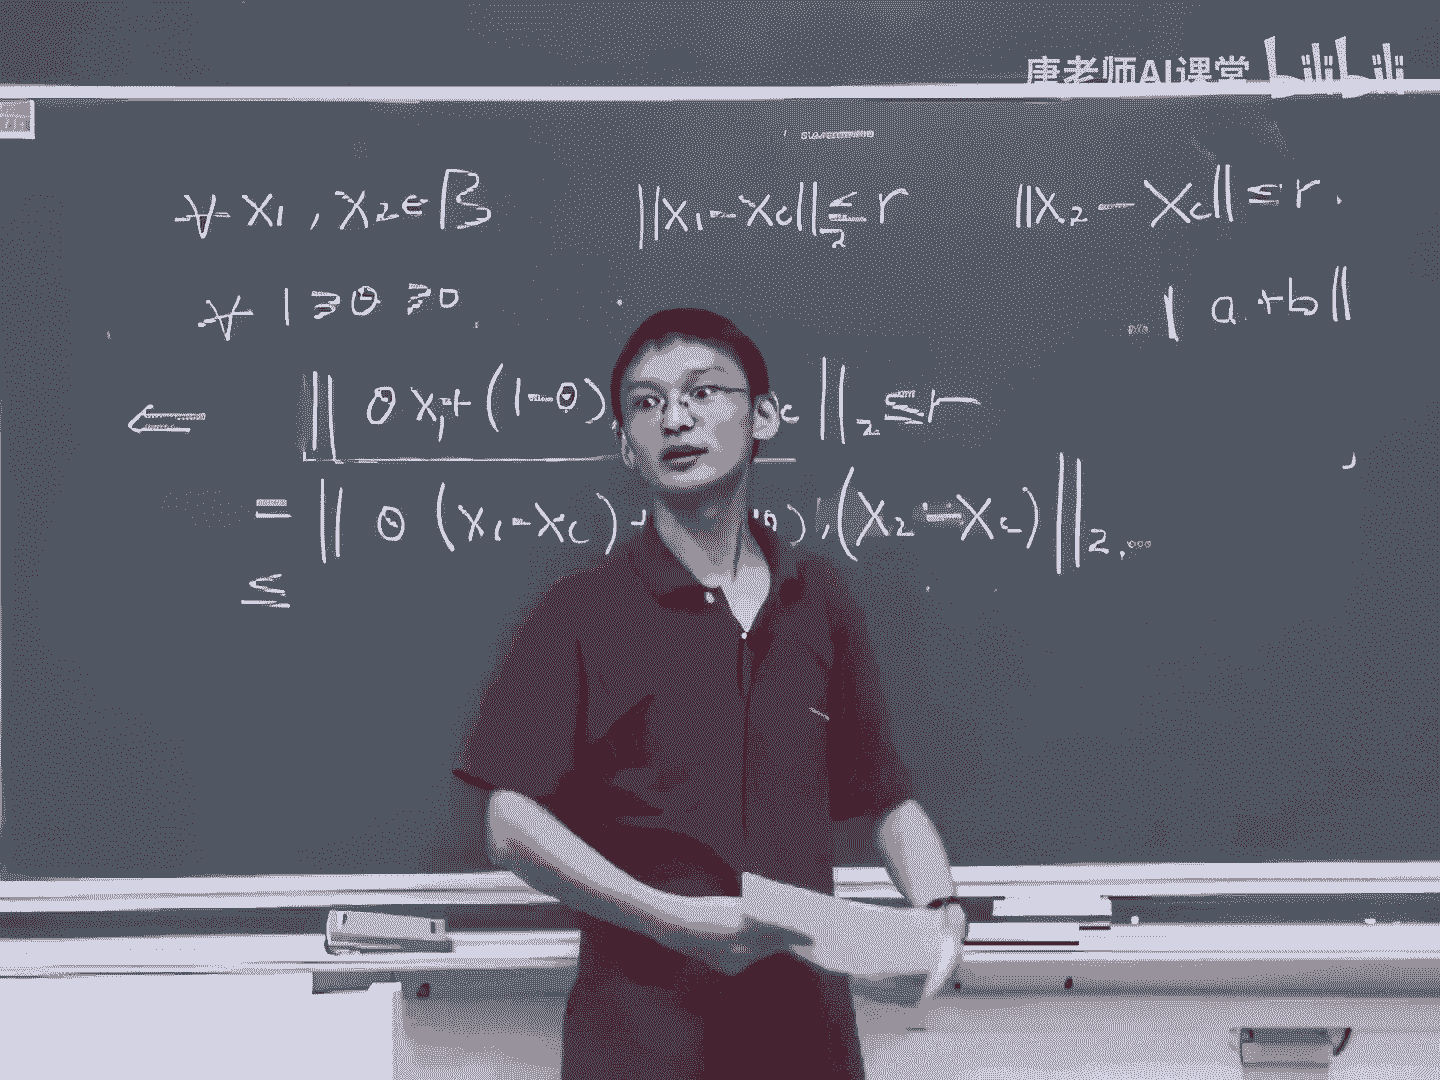 唐老师AI课堂 bilibili
∀ x₁, x₂ ∈ B ‖x₁ - x_c‖₂ ≤ r ‖x₂ - x_c‖ ≤ r.
∀ 1 ≥ θ ≥ 0 ‖a + b‖
⇐ ‖ θ x₁ + (1-θ) c ‖₂ ≤ r
= ‖ θ (x₁ - x_c) + θ) (x₂ - x_c) ‖₂
≤